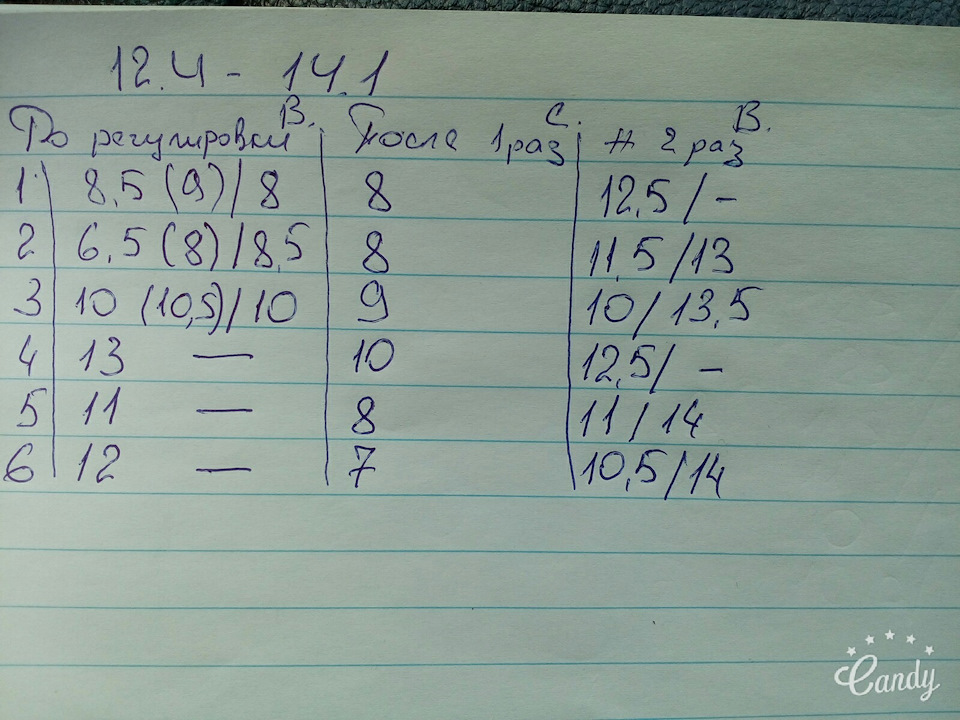 12.4 - 14.1
До регулировки В. | После 1 раз С. | -"- 2 раз В.
1 | 8,5 (9) / 8 | 8 | 12,5 / -
2 | 6,5 (8) / 8,5 | 8 | 11,5 / 13
3 | 10 (10,5) / 10 | 9 | 10 / 13,5
4 | 13 — | 10 | 12,5 / -
5 | 11 — | 8 | 11 / 14
6 | 12 — | 7 | 10,5 / 14
Candy